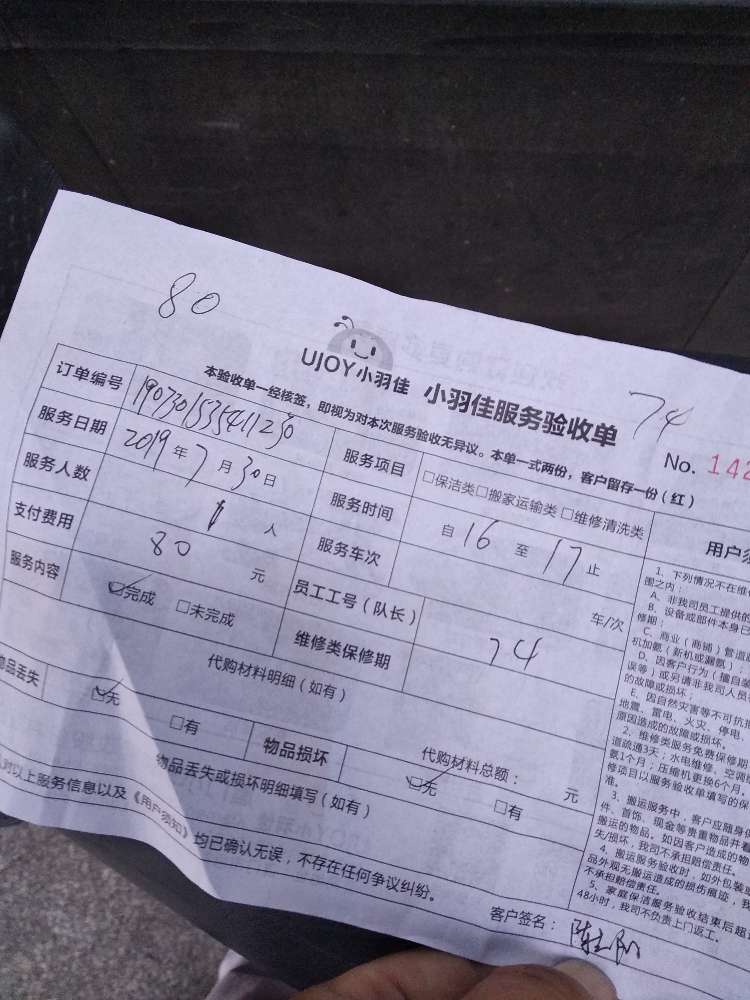 80
UJOY小羽佳 小羽佳服务验收单
74
No. 142
本验收单一经核签,即视为对本次服务验收无异议。本单一式两份,客户留存一份(红)
订单编号 190730153541125
服务项目 □保洁类□搬家运输类□维修清洗类
服务日期 2019年7月30日
服务时间 自16至17止
服务人数 1人
服务车次 车/次
支付费用 80元
员工工号(队长) 74
服务内容 ☑完成 □未完成
维修类保修期
代购材料明细(如有)
代购材料总额: 元
物品丢失 ☑无 □有
物品损坏 ☑无 □有
物品丢失或损坏明细填写(如有)
对以上服务信息以及《用户须知》均已确认无误,不存在任何争议纠纷。
客户签名:
用户须
1、下列情况不在维
围之内:
A、非我司员工提供的
B、设备或部件本身已
修期;
C、商业(商铺)管道
机加氨(新机或漏氨);
D、因客户行为(擅自装
误等)或另请非我司人员
的故障或损坏;
E、因自然灾害等不可抗
地震、雷电、火灾、停电、
原因造成的故障或损坏。
2、维修类服务免费保修期
道疏通3天;水电维修、空调
氨1个月;压缩机更换6个月。
修项目以服务验收单填写的保
准。
3、搬运服务中,客户应随身
件、首饰、现金等贵重物品并看
搬运的物品。如因客户造成的物
失/损坏,我司不承担赔偿责任。
4、搬运服务验收时,如外包装
品外观无搬运造成的损伤痕迹,我
不承担赔偿责任。
5、家庭保洁服务验收结束后超
48小时,我司不负责上门返工。